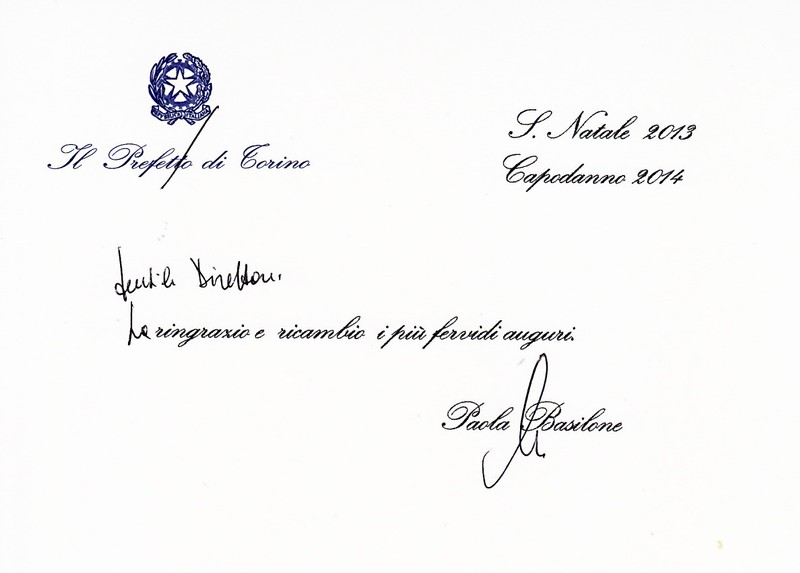 REPUBBLICA ITALIANA
Il Prefetto di Torino
S. Natale 2013
Capodanno 2014
Gentile Direttore,
La ringrazio e ricambio i più fervidi auguri.
Paola Basilone